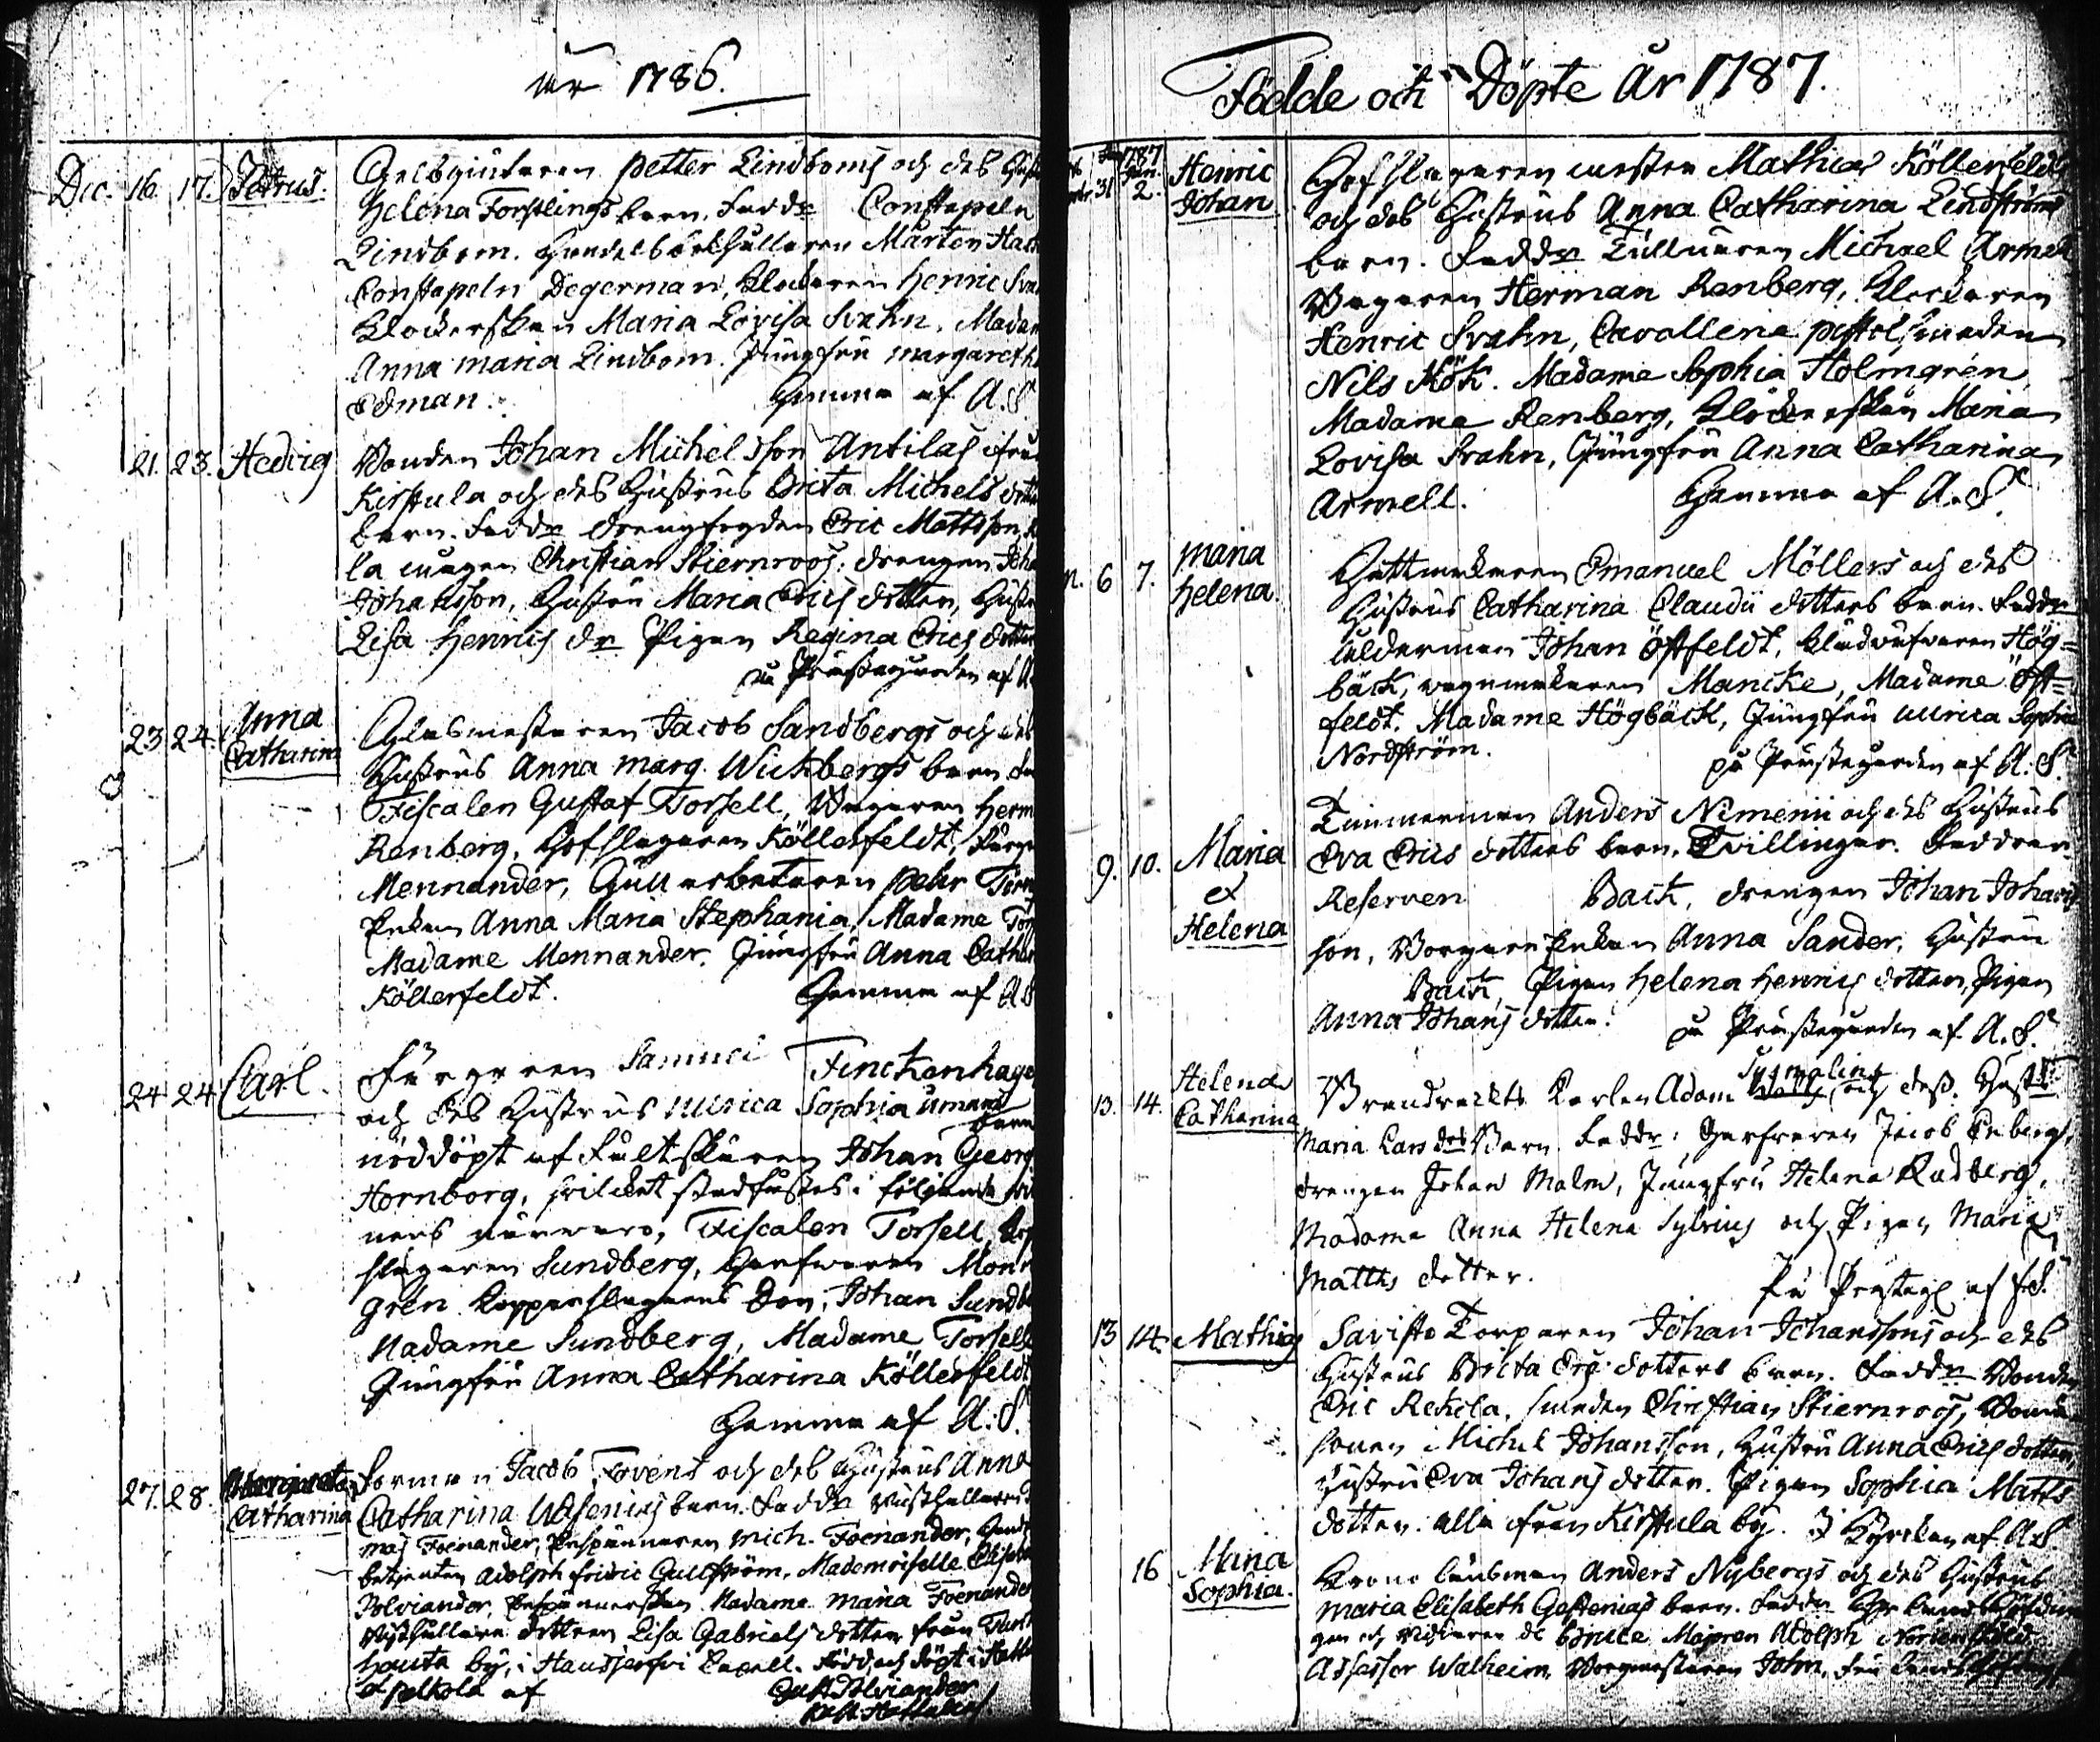 år 1786.
Dec. 16. 17. Petrus. Gelbgiutaren Petter Lindboms och des Hust
Helena Forstlings barn. Faddr Constapeln
Lindbom. Handelsbokhållaren Mårten Hack
Constapeln Degerman, Klockaren Henric Sva
Klockerskan Maria Lovisa Svahn, Madam
Anna Maria Lindbom. Jungfru Margareth
Edman. Hemma af A.S.
21. 23. Hedvig Bonden Johan Michelsson Antilas ifrån
Kirstula och des Hustrus Brita Michels dott
barn. Faddr drengfogden Eric Mattsson,
Christian Stiernroos, drengen Joha
Johansson, Hustru Maria Erics dotter, Hustr
Lisa Henrics dr Pigan Regina Erics dotter
på Prästegården af A.
23. 24. Anna Catharina Glasmästaren Jacob Sandbergs och des
Hustrus Anna Marg. Wickbergs barn. Fa
Fiscalen Gustaf Torsell, Wagaren Herm
Renberg, Hofslagaren Köllerfeldt, Färga
Mennander, Gullarbetaren Pehr Törn
Enkan Anna Maria Stephania, Madame Tor
Madame Mennander. Jungfru Anna Cathar
Köllerfeldt. Hemma af A.S
24 24 Carl. Färgaren Samuel Finckenhage
och des Hustrus Ulrica Sophia Umans
barn
nöddöpt af Fältskären Johan Georg
Hornborg, hvilcket stadfästes i följande
ners närvaro, Fiscalen Torsell, Hof
slagaren Sundberg, Garfvaren Mon
grén Kopparslagarens Son, Johan Sundb
Madame Sundberg, Madame Torsell
Jungfru Anna Catharina Köllerfeldt
Hemma af A.S.
27. 28. Margareta Catharina Jacob Fovens och des Hustrus Anna
Catharina Wasenius barn. Faddr
Foenander, Mich. Foenander,
betjenten Adolph Fridric Gullström, Mademoiselle
Polviander, Madame Maria Foenander
dottren Lisa Gabriels dotter från
hauta by, i Hausjerfvi Capell. Född och döpt i
af Gust. Polviander
Födde och Döpte År 1787.
31 1787 Jan. 2. Henric Johan Hofslagaren mester Mathias Köllerfeldt
och des Hustrus Anna Catharina Lindströms
barn. Faddr Tullnären Michael Armel
Wagaren Herman Renberg, Klockaren
Henric Svahn, Cavallerie Pistolsmeden
Nils Kök. Madame Sophia Holmgrén
Madame Renberg, Klockerskan Maria
Lovisa Svahn, Jungfru Anna Catharina
Armell. Hemma af A.S.
6 7. Maria Helena. Hattmakaren Emanuel Möllers och des
Hustrus Catharina Claudii dotters barn. Faddr
ålderman Johan Östfeldt, Klädväfvaren Hög=
bäck, vagnmakaren Mancke, Madame Öst=
feldt. Madame Högbäck, Jungfru Ulrica Sophia
Nordström. på Prästegården af A.S.
9. 10. Maria et Helena Timmerman Anders Nimenii och des Hustrus
Eva Erics dotters barn. Tvillingar. Faddrar
Reserven Back, drengen Johan Johans
son, Borgare Enkan Anna Sander, Hustru
Back, Pigan Helena Henrics dotter, Pigan
Anna Johans dotter. på Prästegården af A.S.
13. 14. Helena Catharina Karlen Adam Sysmalin och dess Hust:
Maria Lars dr Barn. Faddr: Garfvaren Jacob Enberg,
drengen Johan Malm, Jungfru Helena Rudberg,
Madame Anna Helena Sylvius och Pigan Maria
Matths dotter. På Prästeg af
13 14. Mathias Savisto Torparen Johan Johanssons och des
Hustrus Brita Erics dotters barn. Faddr Bonden
Eric Rekola, smeden Christian Stiernroos, Bonde
sonen Michel Johansson, Hustru Anna Erics dotter,
Hustru Eva Johans dotter. Pigan Sophia Matts
dotter. alla ifrån Kirstula by. I Kyrckan af A.S
16 Maria Sophia. Krono länsman Anders Nybergs och des Hustrus
Maria Elisabeth Gestenias barn. Faddr
de Bruce Majoren Adolph
Assessor Walheim, Borgmästaren John,